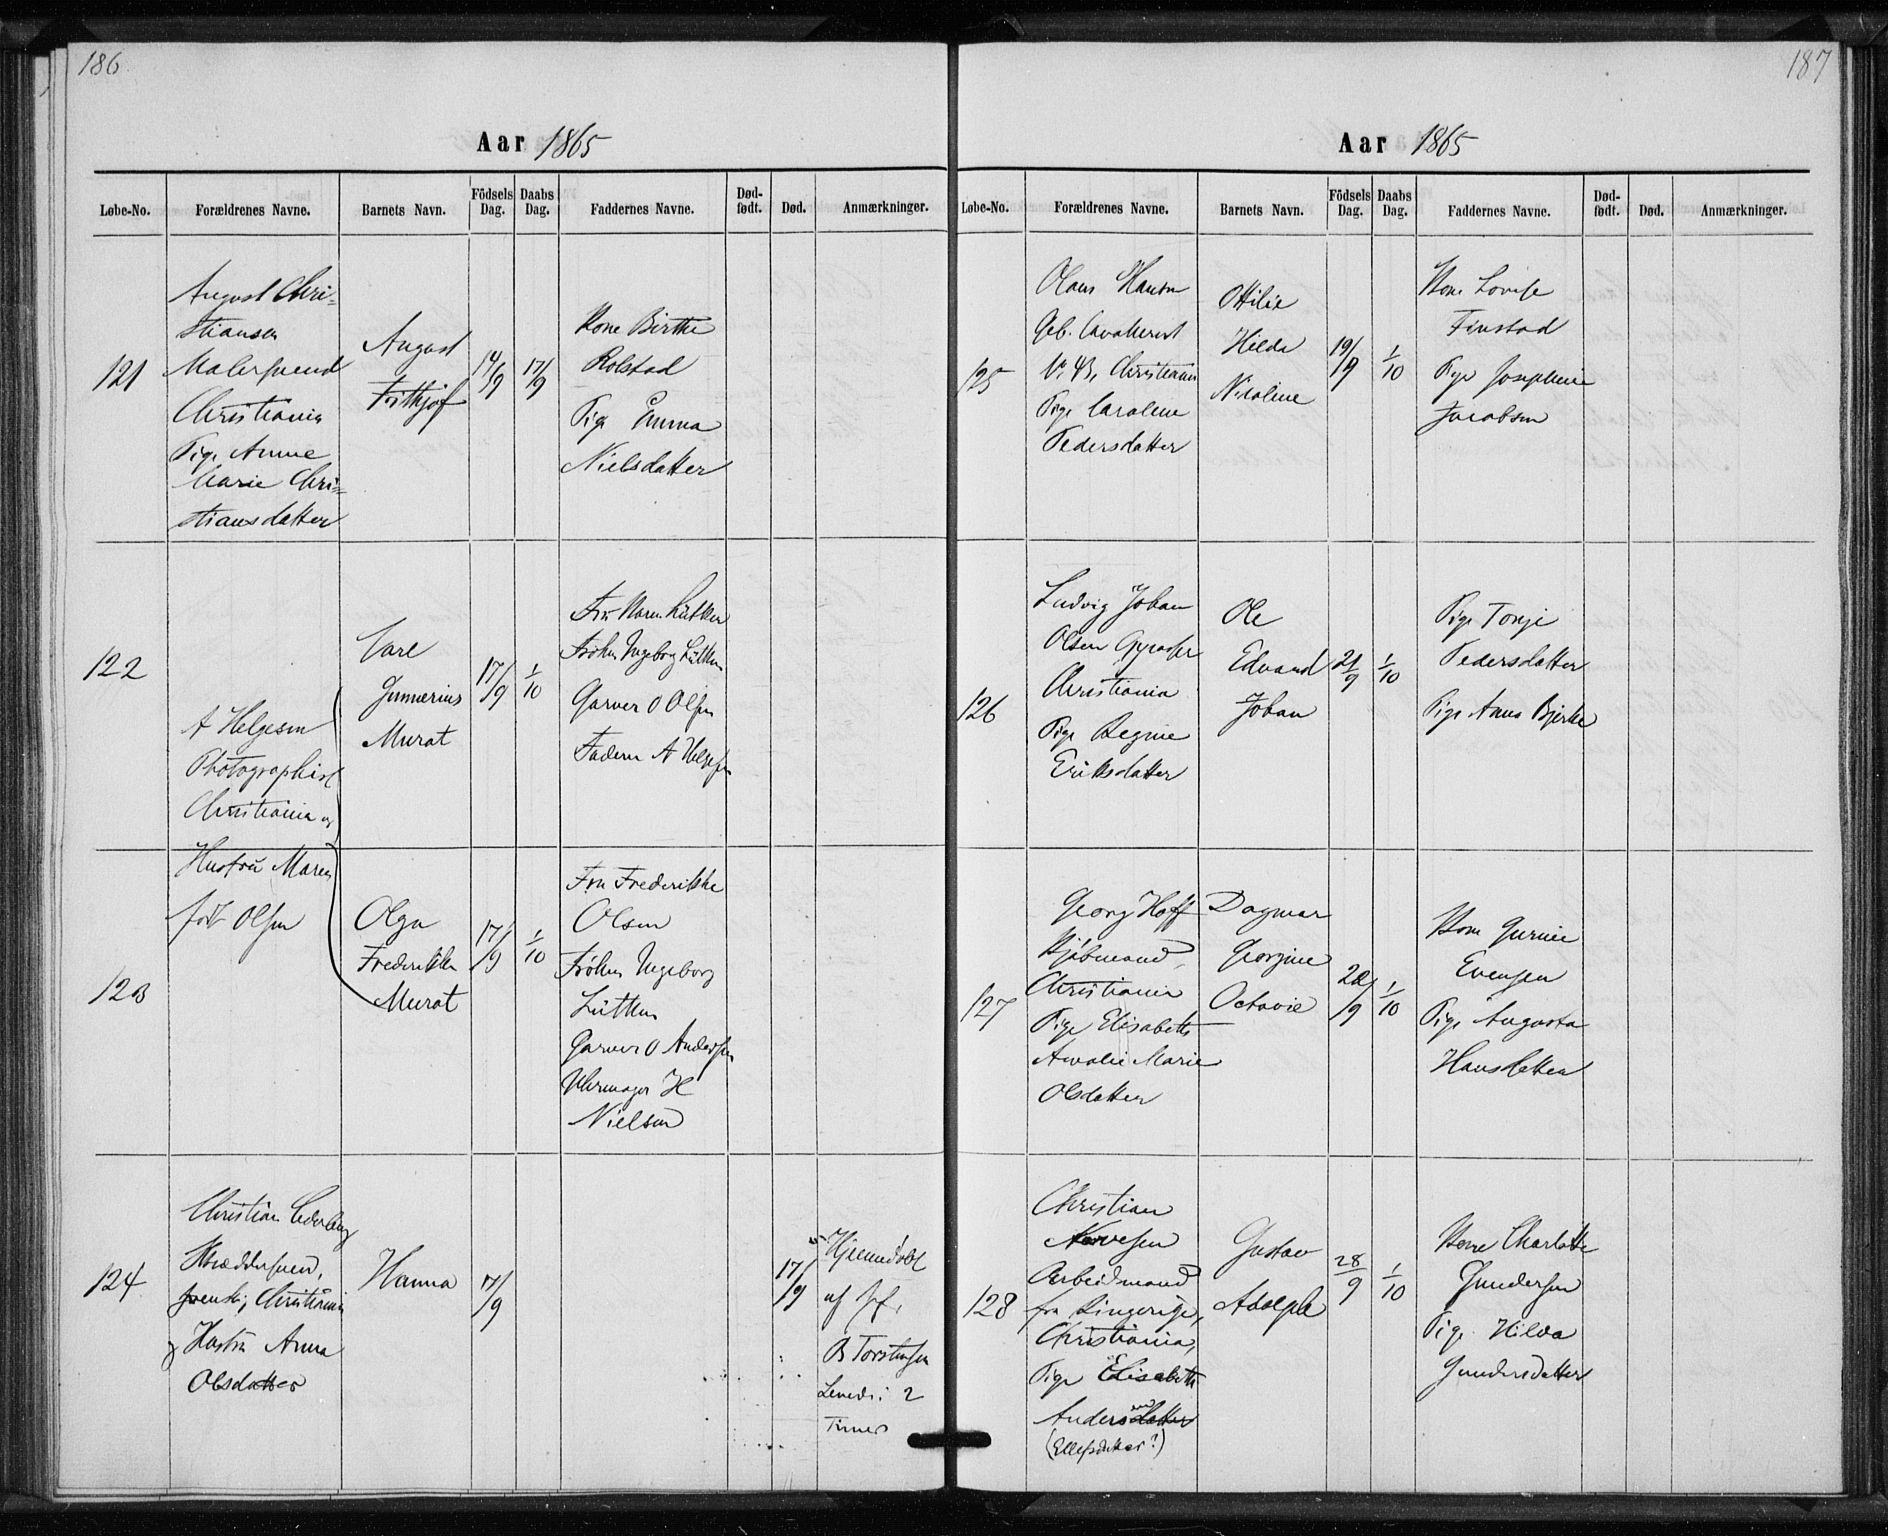 186
Aar 1865
Løbe-No. Forældrenes Navne. Barnets Navn. Födsels Dag. Daabs Dag. Faddernes Navne. Död-födt. Død. Anmærkninger.
121
August Chri-
stiansen
Malersvend
Christiania
Pige Anne
Marie Chri-
stiansdatter
August
Frithjof
14/9
17/9
Kone Birthe
Rolstad
Pige Emma
Nielsdatter
122
A Helgesen
Photographist
Christiania og
Hustru Maren
født Olsen
Carl
Gunnerius
Murat
17/9
1/10
Fru Maren Lütken
Frøken Ingeborg Lütken
Garver O Olsen
Faderen A Helgesen
123
Olga
Frederikke
Murat
17/9
1/10
Fru Frederikke
Olsen
Frøken Ingeborg
Lütken
Garver O Andersen
Uhrmager H
Nielsen
124
Christian Cederberg
Skræddersvend,
svensk, Christiania
og Hustru Anna
Olsdatter
Hanna
17/9
17/9
Hjemmedøbt
af Jf.
B Torstensen
Levede i 2
Timer
187
Aar 1865
Løbe-No. Forældrenes Navne. Barnets Navn. Födsels Dag. Daabs Dag. Faddernes Navne. Död-födt. Død. Anmærkninger.
125
Olaus Hansen
Geb. Cavallerist
No 43, Christiania
Pige Caroline
Pedersdatter
Ottilie
Hilda
Nicoline
19/9
1/10
Kone Lovise
Finstad
Pige Josephine
Jacobsen
126
Ludvig Johan
Olsen
Christiania
Pige Regine
Eriksdatter
Ole
Edvard
Johan
21/9
1/10
Pige Tonje
Pedersdatter
Pige Anne Bjerke
127
Georg Hoff
Kjøbmand,
Christiania
Pige Elisabeth
Amalie Marie
Olsdatter
Dagmar
Georgine
Octavie
22/9
1/10
Kone Gurine
Evensen
Pige Augusta
Hansdatter
128
Christian
Arbeidsmand
fra Ringerige,
Christiania,
Pige Elisabeth
Andersdatter
(Ellefsdatter?)
Gustav
Adolph
28/9
1/10
Kone Charlotte
Gundersen
Pige Hilda
Gundersdatter